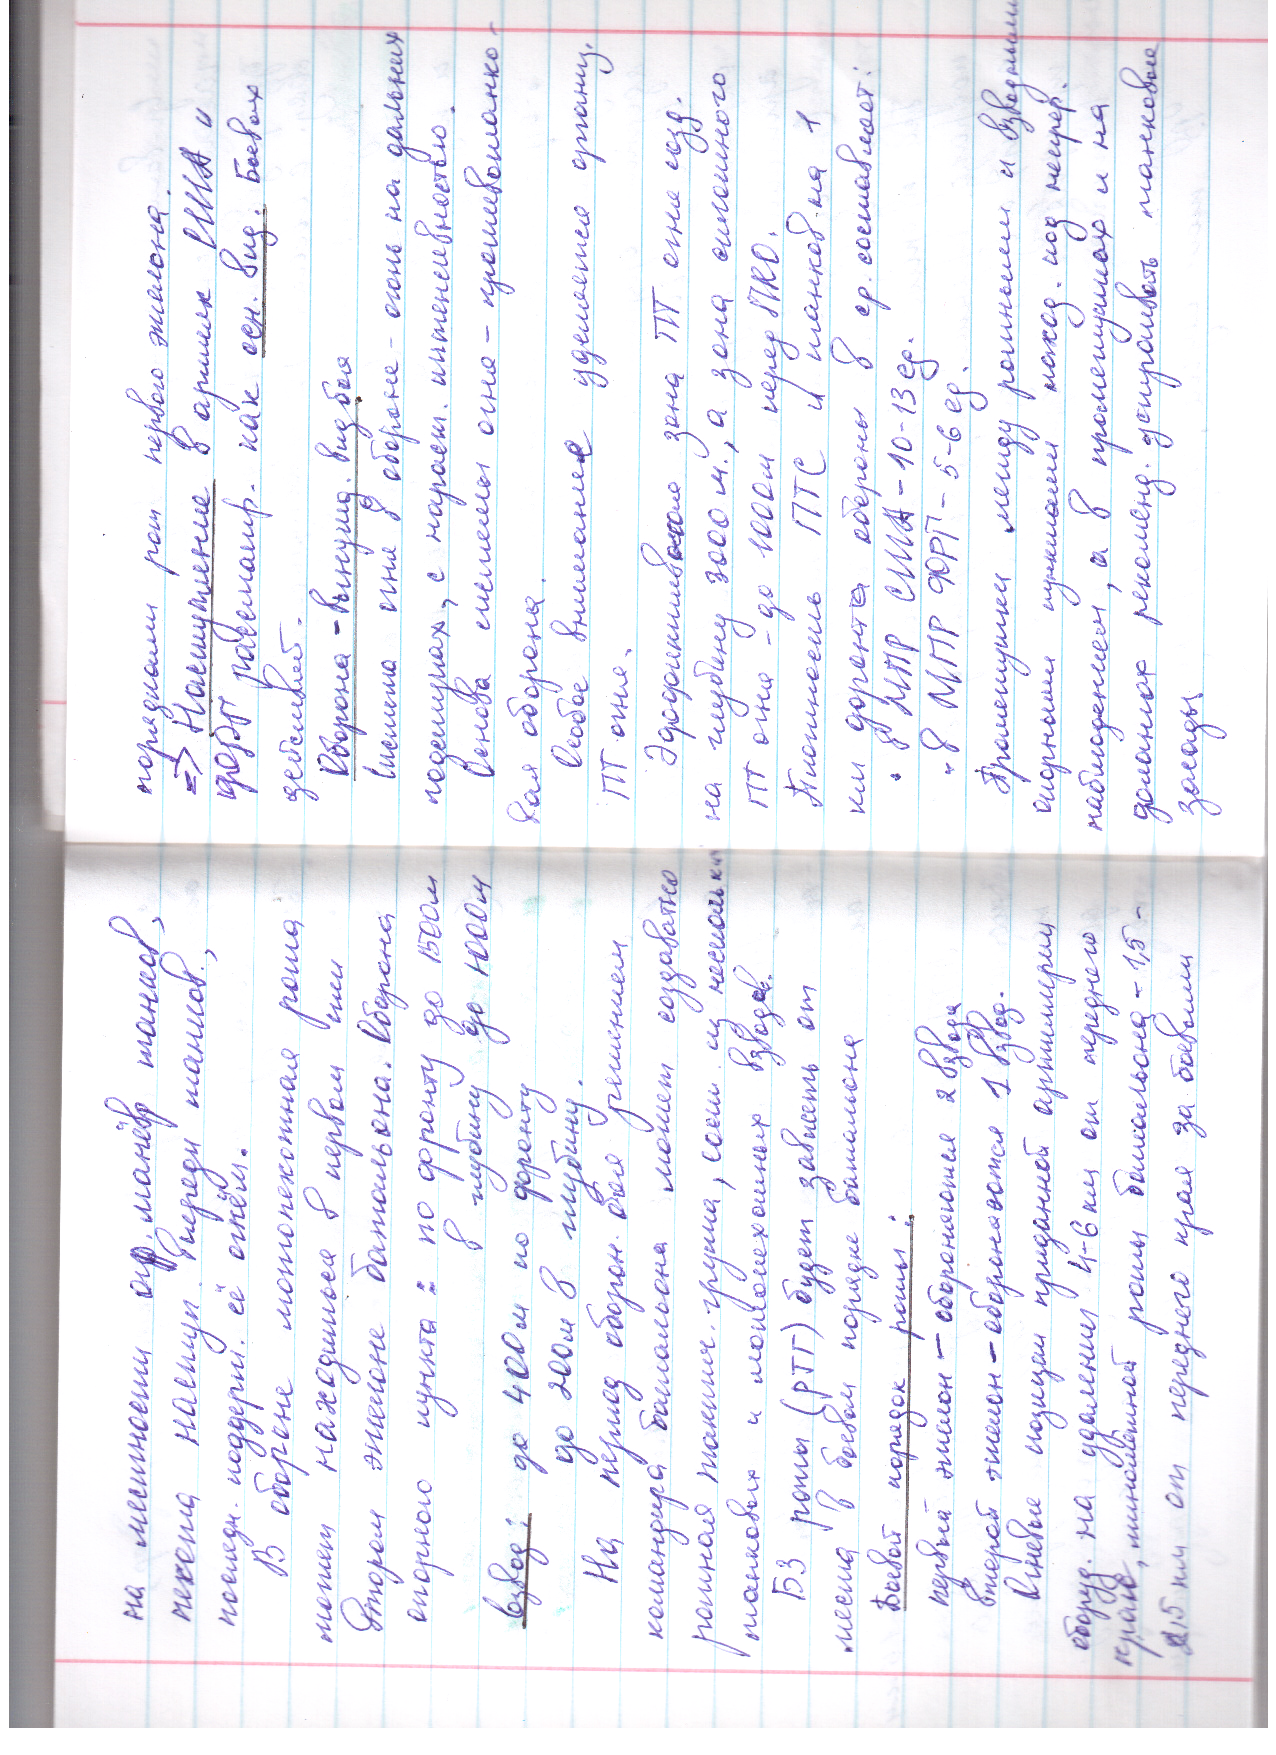 на местности огр. манёвр танков,
пехота наступ. впереди танков,
последн. поддерж. её огнём.
В обороне мотопехотная рота
может находиться в первом или
втором эшелоне батальона. Оборона
опорного пункта: по фронту до 1500м
в глубину до 1000м
взвод: до 400м по фронту
до 200м в глубину.
На период оборон. боя решением
командира батальона может создаваться
ротная тактич. группа, сост. из нескольких
танковых и мотопехотных взводов.
БЗ роты (РТГ) будет зависеть от
места в боевом порядке батальона
Боевой порядок роты:
первый эшелон - обороняются 2 взвода
второй эшелон - обороняются 1 взвод.
Огневые позиции приданной артиллерии
оборуд. на удалении 4-6 км от переднего
края, миномётной роты батальона - 1,5-
2,5 км от переднего края за боевыми
порядками рот первого эшелона.
=> Наступление в армиях США и
ФРГ рассматр. как осн. вид. боевых
действий.
Оборона - вынужд. вид боя
Система огня в обороне - огонь на дальних
подступах, с нараст. интенсивностью.
Основа системы огня - противотанко-
вая оборона.
Особое внимание уделяется организ.
ПТ огня.
Эффективная зона ПТ огня созд.
на глубину 3000 м., а зона сплошного
ПТ огня - до 1000м перед ПКО.
Плотность ПТС и танков на 1
км фронта обороны в ср. составляет:
• в МПР США - 10-13 ед.
• в МПР ФРГ - 5-6 ед.
Промежутки между ротными и взводными
опорными пунктами наход. под непрер.
наблюдением, а в промежутках и на
флангах рекоменд. устраивать танковые
засады